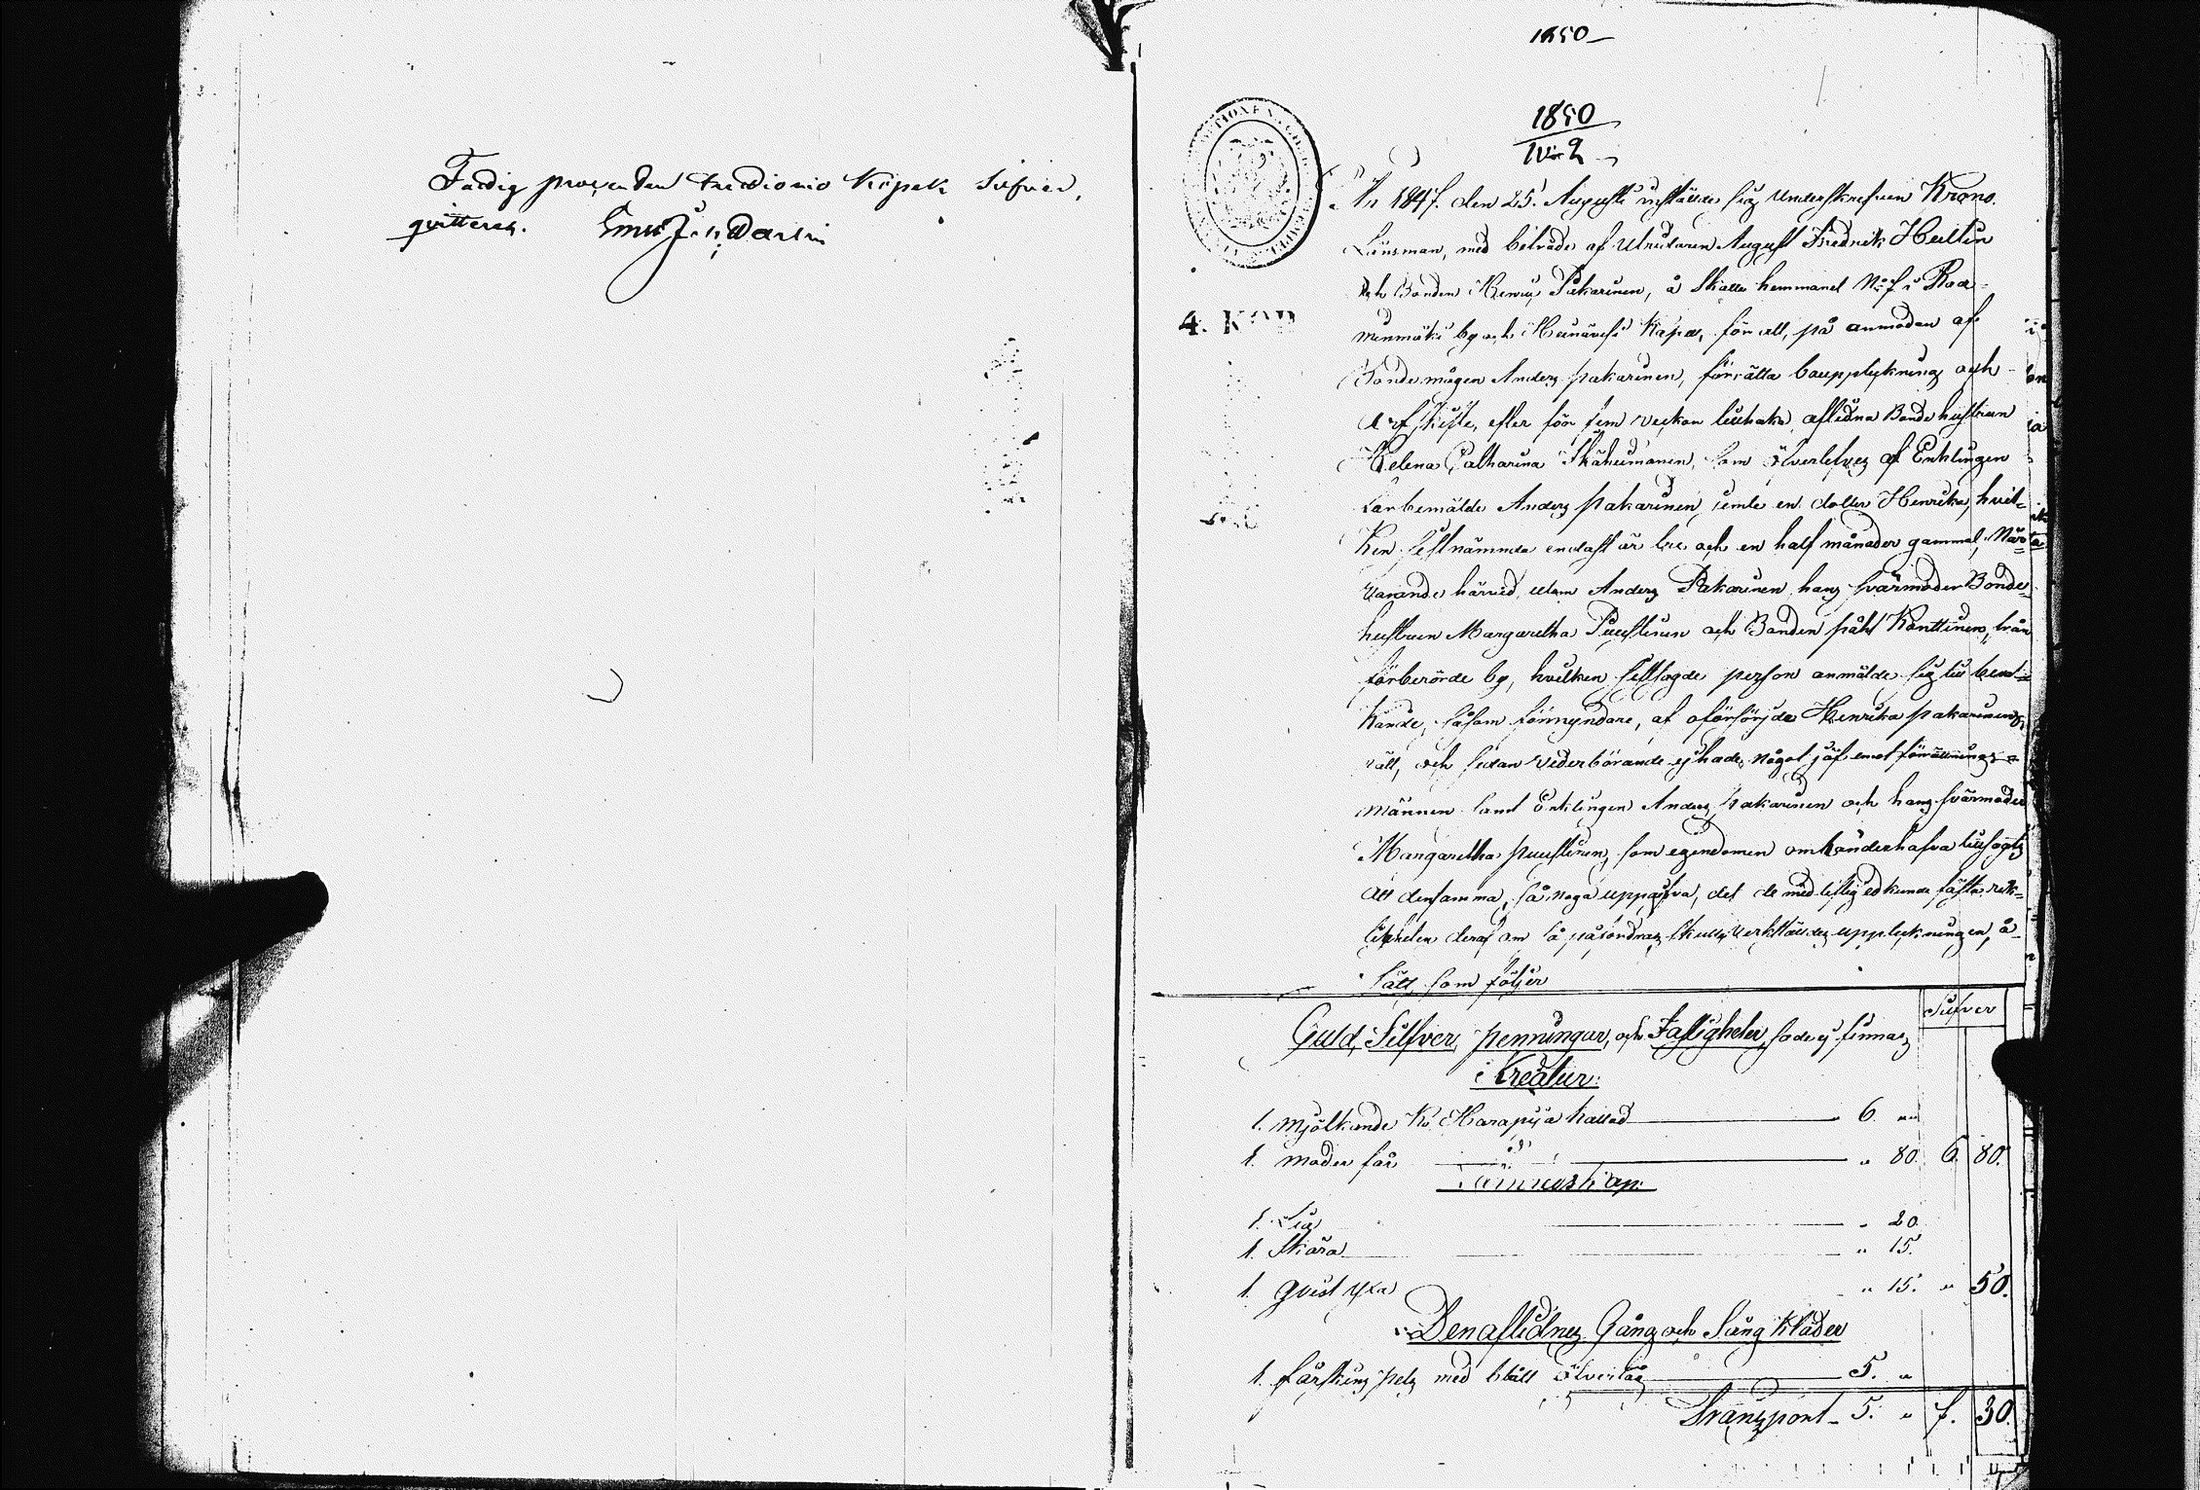 Fattig procenten tredionio Kopek Silfver,
qvitteras.
1850
1850
N:o 2
4. KOP
År 1847. den 25. Augusti instälde sig Underskrefven Krono
Länsman, med biträde af Utridaren August Fredrik Hellin
och Bonden Henrik Pakarinen, å Skatte hemmanet N:o 7 i Raa-
minmäki by och Heinävesi Kapell, för att, på anmodan af
Bondemågen Anders Pakarinen, förrätta bouppteckning och
Arfskifte, efter för fem veckor tillbaka aflidna Bondehustrun
Helena Catharina som öfverlefves af Enklingen
förbemälde Anders Pakarinen, jemte en dotter Henrika, hvil-
ken sistnämnda endast är tre och en half månader gammal, När-
varande härvid, utom Anders Pakarinen hans svärmoder Bonde-
hustrun Margaretha Puustinen och Bonden Påhl Konttinen, från
förberörde by, hvilken sistsagde person anmälde sig till bevak-
kande, såsom förmyndare, af oförsörjda Henrika Pakarinens
rätt, och sedan vederbörande ej hade något jäf emot förrättnings-
männen samt Enklingen Anders Pakarinen och hans svärmoder
Margaretha Puustinen, som egendomen omhänderhafva tillsagts
att densamma, så noga uppgifva, det de med liflig ed kunna fästa rik-
tigheten deraf om så påfordras, skulle verkställdes uppteckningen, å
sätt som följer
Silfver
Guld, Silfver, penningar, och Fastigheter, sades ej finnas
Kreatur:
1. mjölkande Ko Harapija kallad 6. "
1. moder får " 80. 6. 80.
1. Lia " 20.
1. Skära " 15.
1. qvist yxa " 15. " 50.
Den aflidnes Gång och Säng Kläder
1. fårskins pels med blått öfvertåg 5. "
Transport 5. " 7. 30.